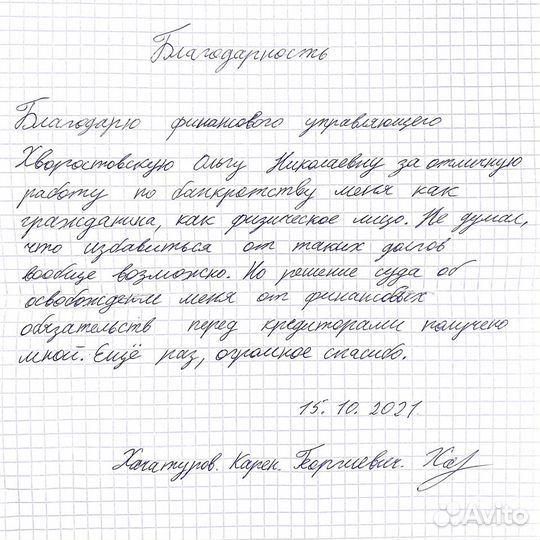 Благодарность
Благодарю финансового управляющего
Хворостовскую Ольгу Николаевну за отличную
работу по банкротству меня как
гражданина, как физическое лицо. Не думал,
что избавиться от таких долгов
вообще возможно. Но решение суда об
освобождении меня от финансовых
обязательств перед кредиторами получено
мной. Ещё раз, огромное спасибо.
15.10.2021
Хачатуров. Карен. Георгиевич.
Avito